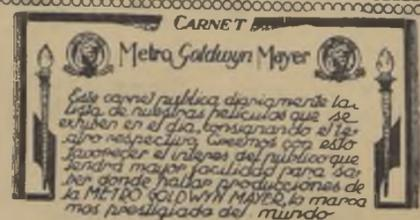 CARNET
Metro Goldwyn Mayer
Este carnet publica diariamente la
lista de nuestras películas que se
exhiben en el día, consignando el te-
atro respectivo. Creemos con esto
favorecer el interes del publico que
tendrá mayor facilidad para sa-
ber donde hallar producciones de
la METRO GOLDWYN MAYER, la marca
mas prestigiada del mundo